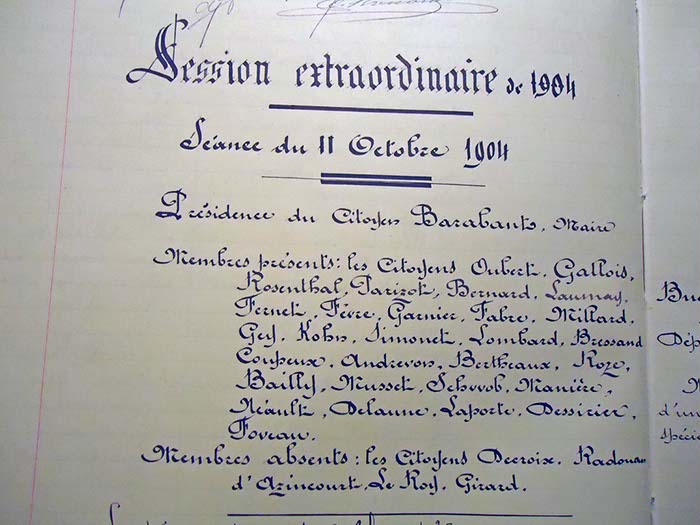 Session extraordinaire de 1904
Séance du 11 Octobre 1904
Présidence du Citoyen Barabant, Maire
Membres présents : les Citoyens Oubert, Gallois,
Rosenthal, Parizot, Bernard, Launay,
Fernet, Fèvre, Garnier, Fabre, Millard,
Gey, Kohn, Simonet, Lombard, Bressand
Coupeux, Andrevon, Bertheaux, Roze,
Bailly, Musset, Schwob, Manière,
Néault, Delaune, Laporte, Dessirier,
Foveau.
Membres absents : les Citoyens Decroix, Radouan
d'Azincourt, Le Roy, Girard.
Bu
Dép
d'un
spéci